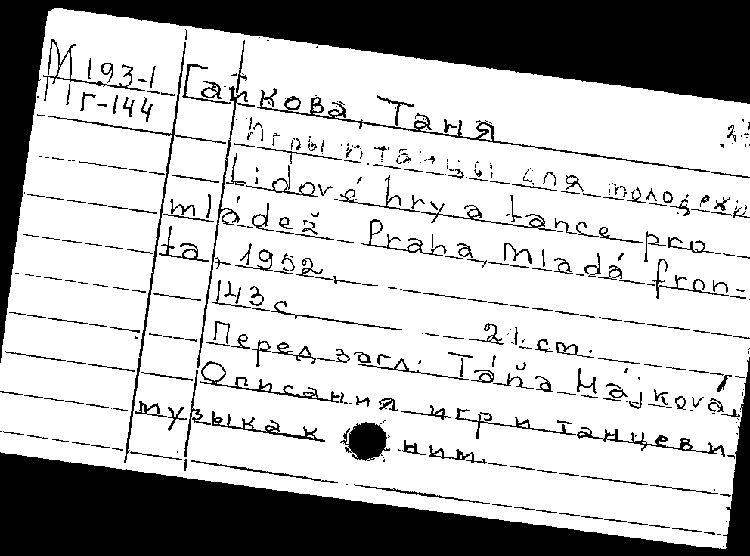 М 193-1
Г-144
Гайкова, Таня
Игры и танцы для молодежи
Lidové hry a tance pro
mládež Praha, Mladá fron-
ta, 1952.
143 с. 21 cm.
Перед загл.: Táňa Hájková.
Описания игр и танцев и
музыка к ним.